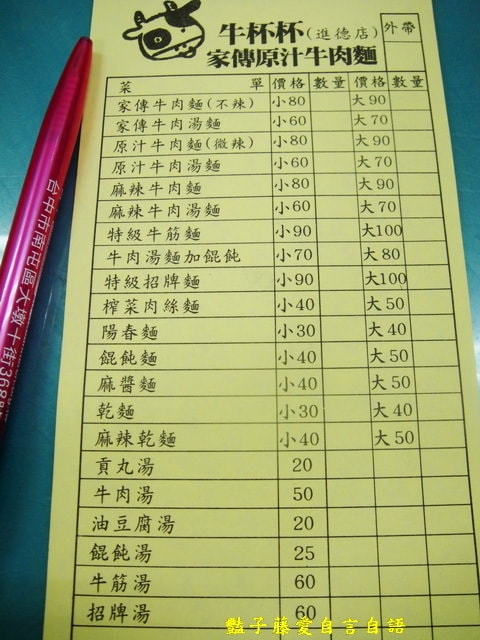 牛杯杯(進德店)
外帶
家傳原汁牛肉麵
菜單 價格 數量 價格 數量
家傳牛肉麵(不辣) 小80 大90
家傳牛肉湯麵 小60 大70
原汁牛肉麵(微辣) 小80 大90
原汁牛肉湯麵 小60 大70
麻辣牛肉麵 小80 大90
麻辣牛肉湯麵 小60 大70
特級牛筋麵 小90 大100
牛肉湯麵加餛飩 小70 大80
特級招牌麵 小90 大100
榨菜肉絲麵 小40 大50
陽春麵 小30 大40
餛飩麵 小40 大50
麻醬麵 小40 大50
乾麵 小30 大40
麻辣乾麵 小40 大50
貢丸湯 20
牛肉湯 50
油豆腐湯 20
餛飩湯 25
牛筋湯 60
招牌湯 60
台中市南屯區大墩十街368
豔子藤愛自言自語